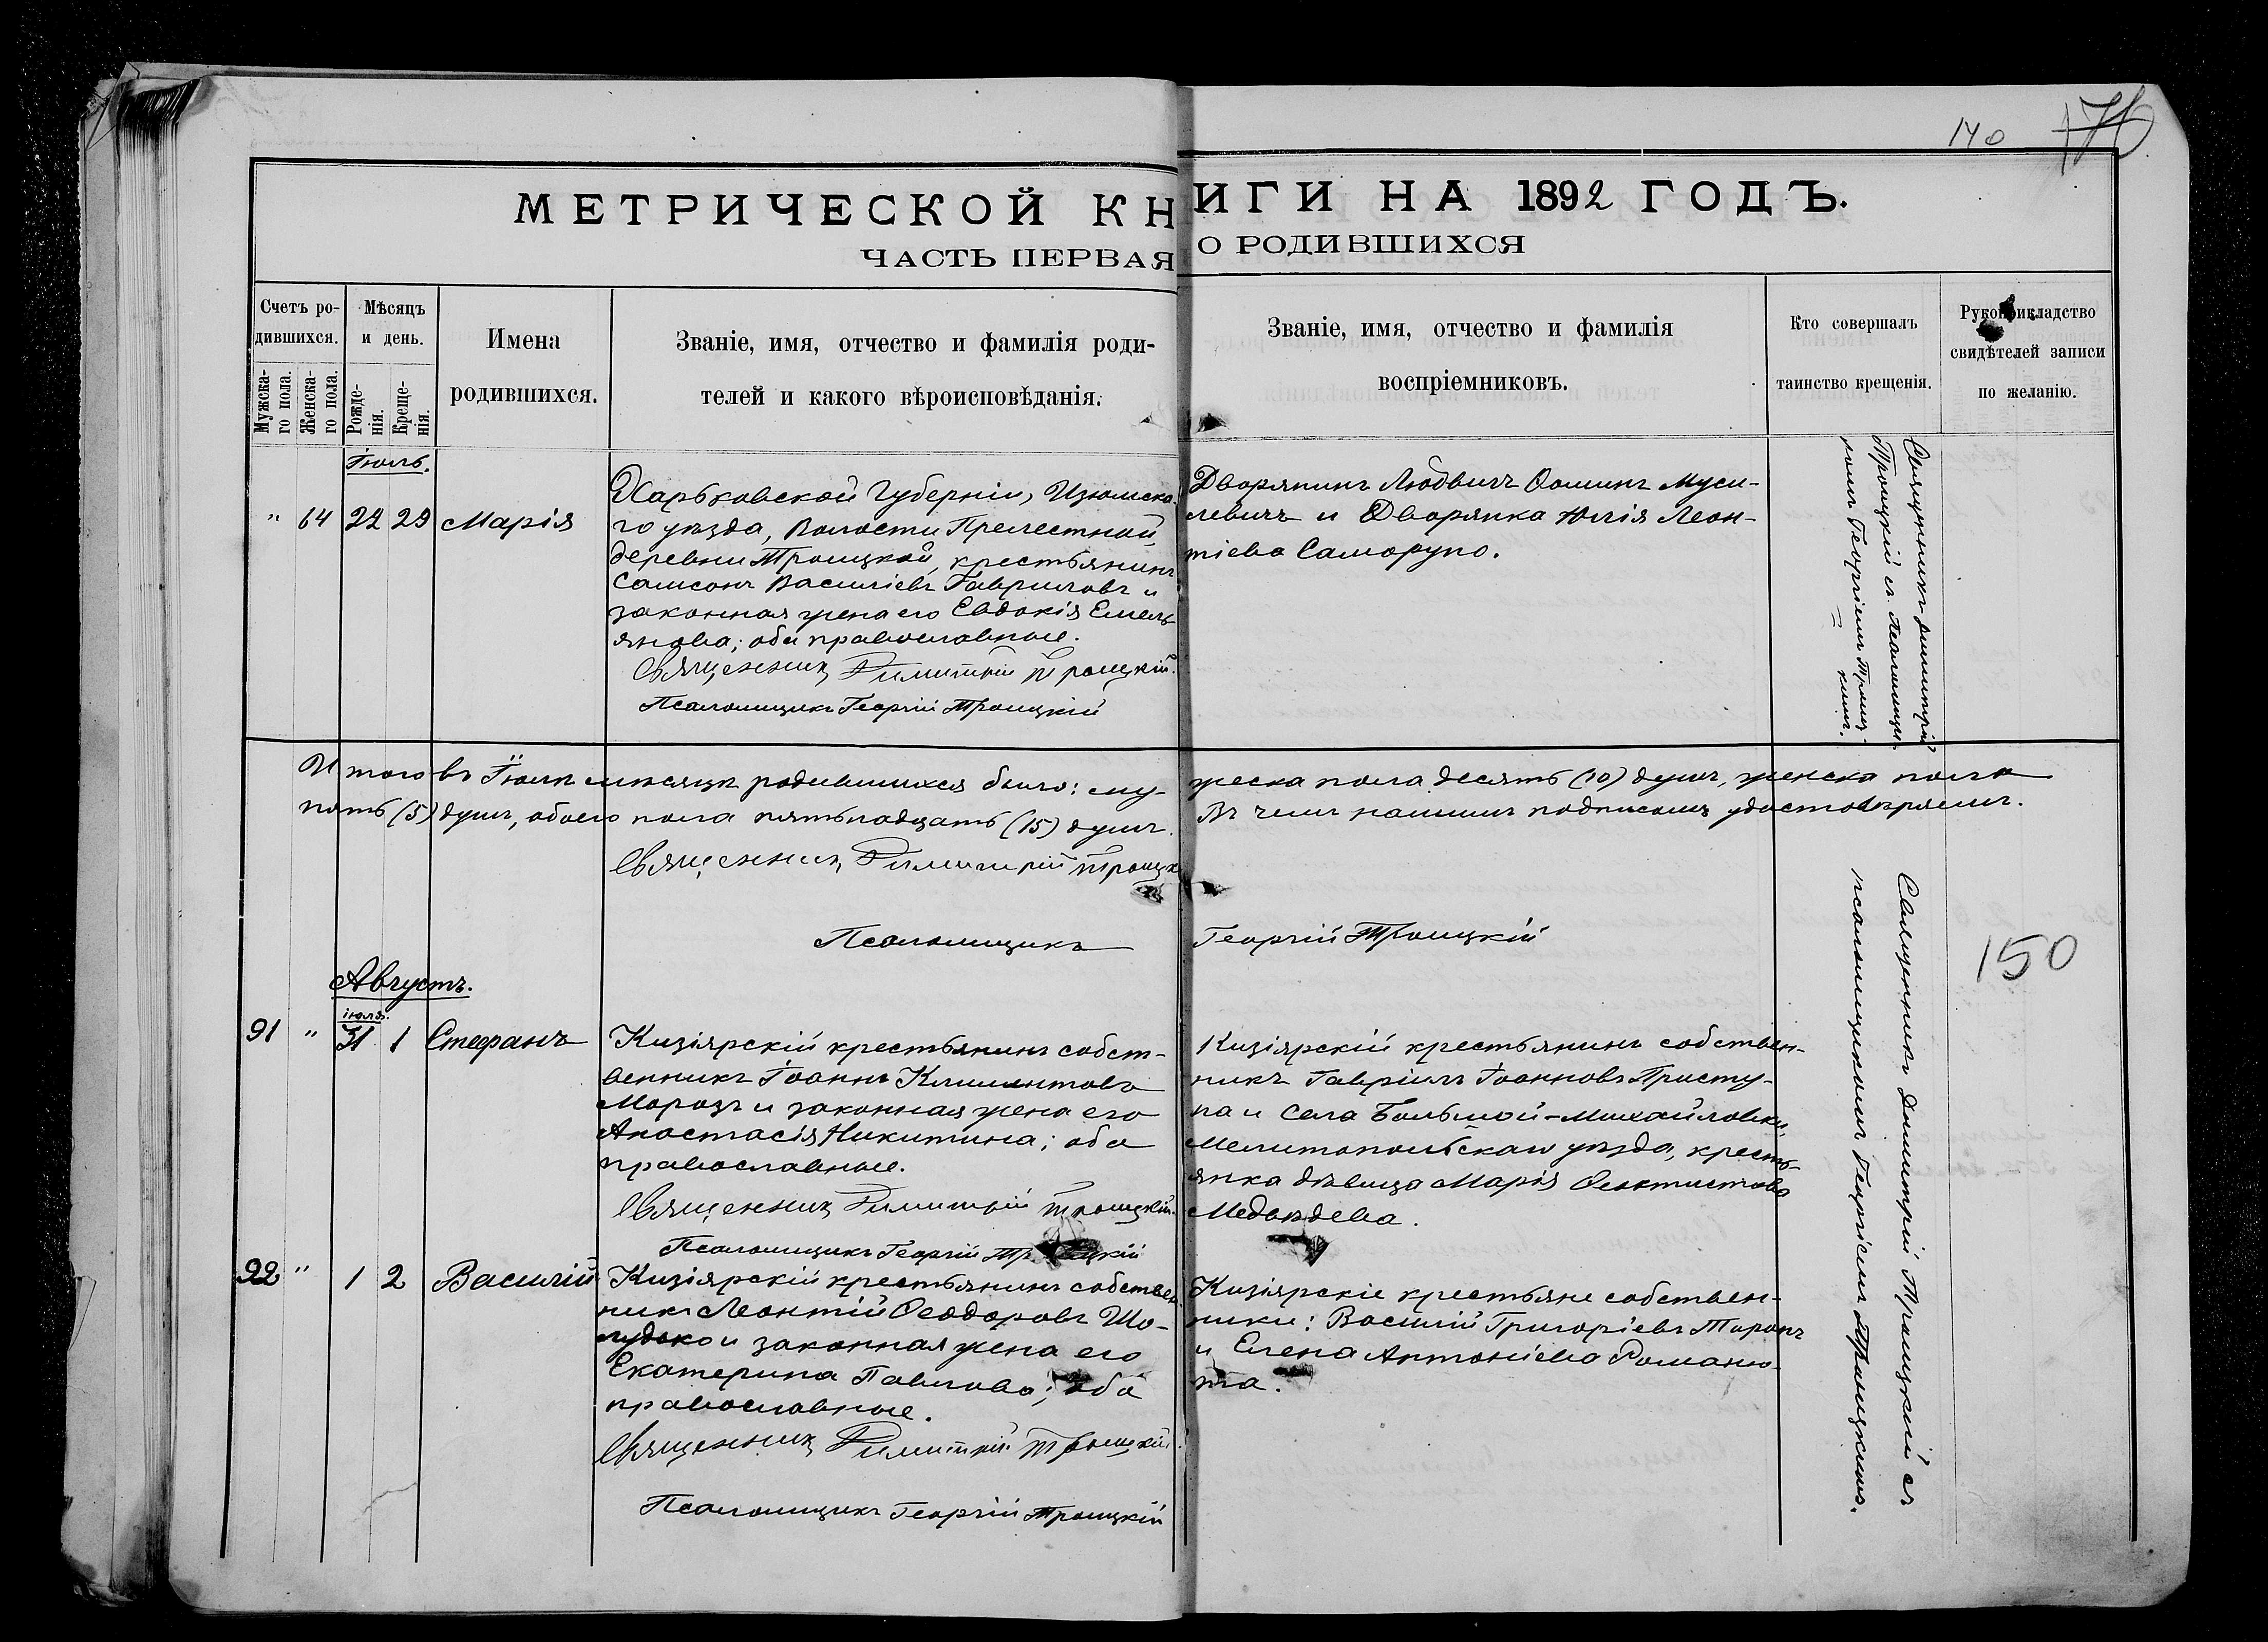 140 176
МЕТРИЧЕСКОЙ КНИГИ НА 1892 ГОДЪ.
ЧАСТЬ ПЕРВАЯ О РОДИВШИХСЯ
Счетъ ро-
дившихся.
Мужска-
го пола.
Женска-
го пола.
Мѣсяцъ
и день.
Рожде-
нія.
Креще-
нія.
Имена
родившихся.
Званіе, имя, отчество и фамилія роди-
телей и какого вѣроисповѣданія.
Званіе, имя, отчество и фамилія
воспріемниковъ.
Кто совершалъ
таинство крещенія.
Рукоприкладство
свидѣтелей записи
по желанію.
Іюль.
" 64 22 29 Марія
Харьковской Губерніи, Изюмска-
го уѣзда, Волости Прелестной
деревни Троицкой, крестьянинъ
Самсонъ Василіевъ Гавриловъ и
законная жена его Евдокія Емель-
янова; оба православные.
Священникъ Димитрій Троицкій.
Псаломщикъ Георгій Троицкій
Дворянинъ Людвигъ Ѳоминъ Муси-
левичъ и Дворянка Юлія Леон-
тіева Саморупо.
Священникъ Димитрій
Троицкій съ Псаломщи-
комъ Георгіемъ Троиц-
кимъ.
Итого въ Іюлѣ мѣсяцѣ родившихся было: му-
жеска пола десять (10) душъ, женска пола
пять (5) душъ, обоего пола пятьнадцать (15) душъ.
Въ чемъ нашимъ подписомъ удостовѣряемъ.
Священникъ Димитрій Троицкій
Псаломщикъ Георгій Троицкій
150
Августъ.
іюля.
91 " 31 1 Стефанъ
Кизіярскій крестьянинъ собст-
венникъ Іоаннъ Климентовъ
Морозъ и законная жена его
Анастасія Никитина; оба
православные.
Священникъ Димитрій Троицкій.
Псаломщикъ Георгій Троицкій
Кизіярскій крестьянинъ собствен-
никъ Гавріилъ Іоанновъ Присту-
па и Села Большой-Михайловки,
Мелитопольскаго уѣзда, кресть-
янка дѣвица Марія Ѳеоктистова
Медвѣдева.
92 " 1 2 Василій
Кизіярскій крестьянинъ собствен-
никъ Леонтій Ѳеодоровъ Шо-
лудько и законная жена его
Екатерина Павлова; оба
православные.
Священникъ Димитрій Троицкій.
Псаломщикъ Георгій Троицкій
Кизіярскіе крестьяне собствен-
ники: Василій Григоріевъ Таранъ
и Елена Антоніева Романю-
та.
Священникъ Димитрій Троицкій съ
псаломщикомъ Георгіемъ Троицкимъ.